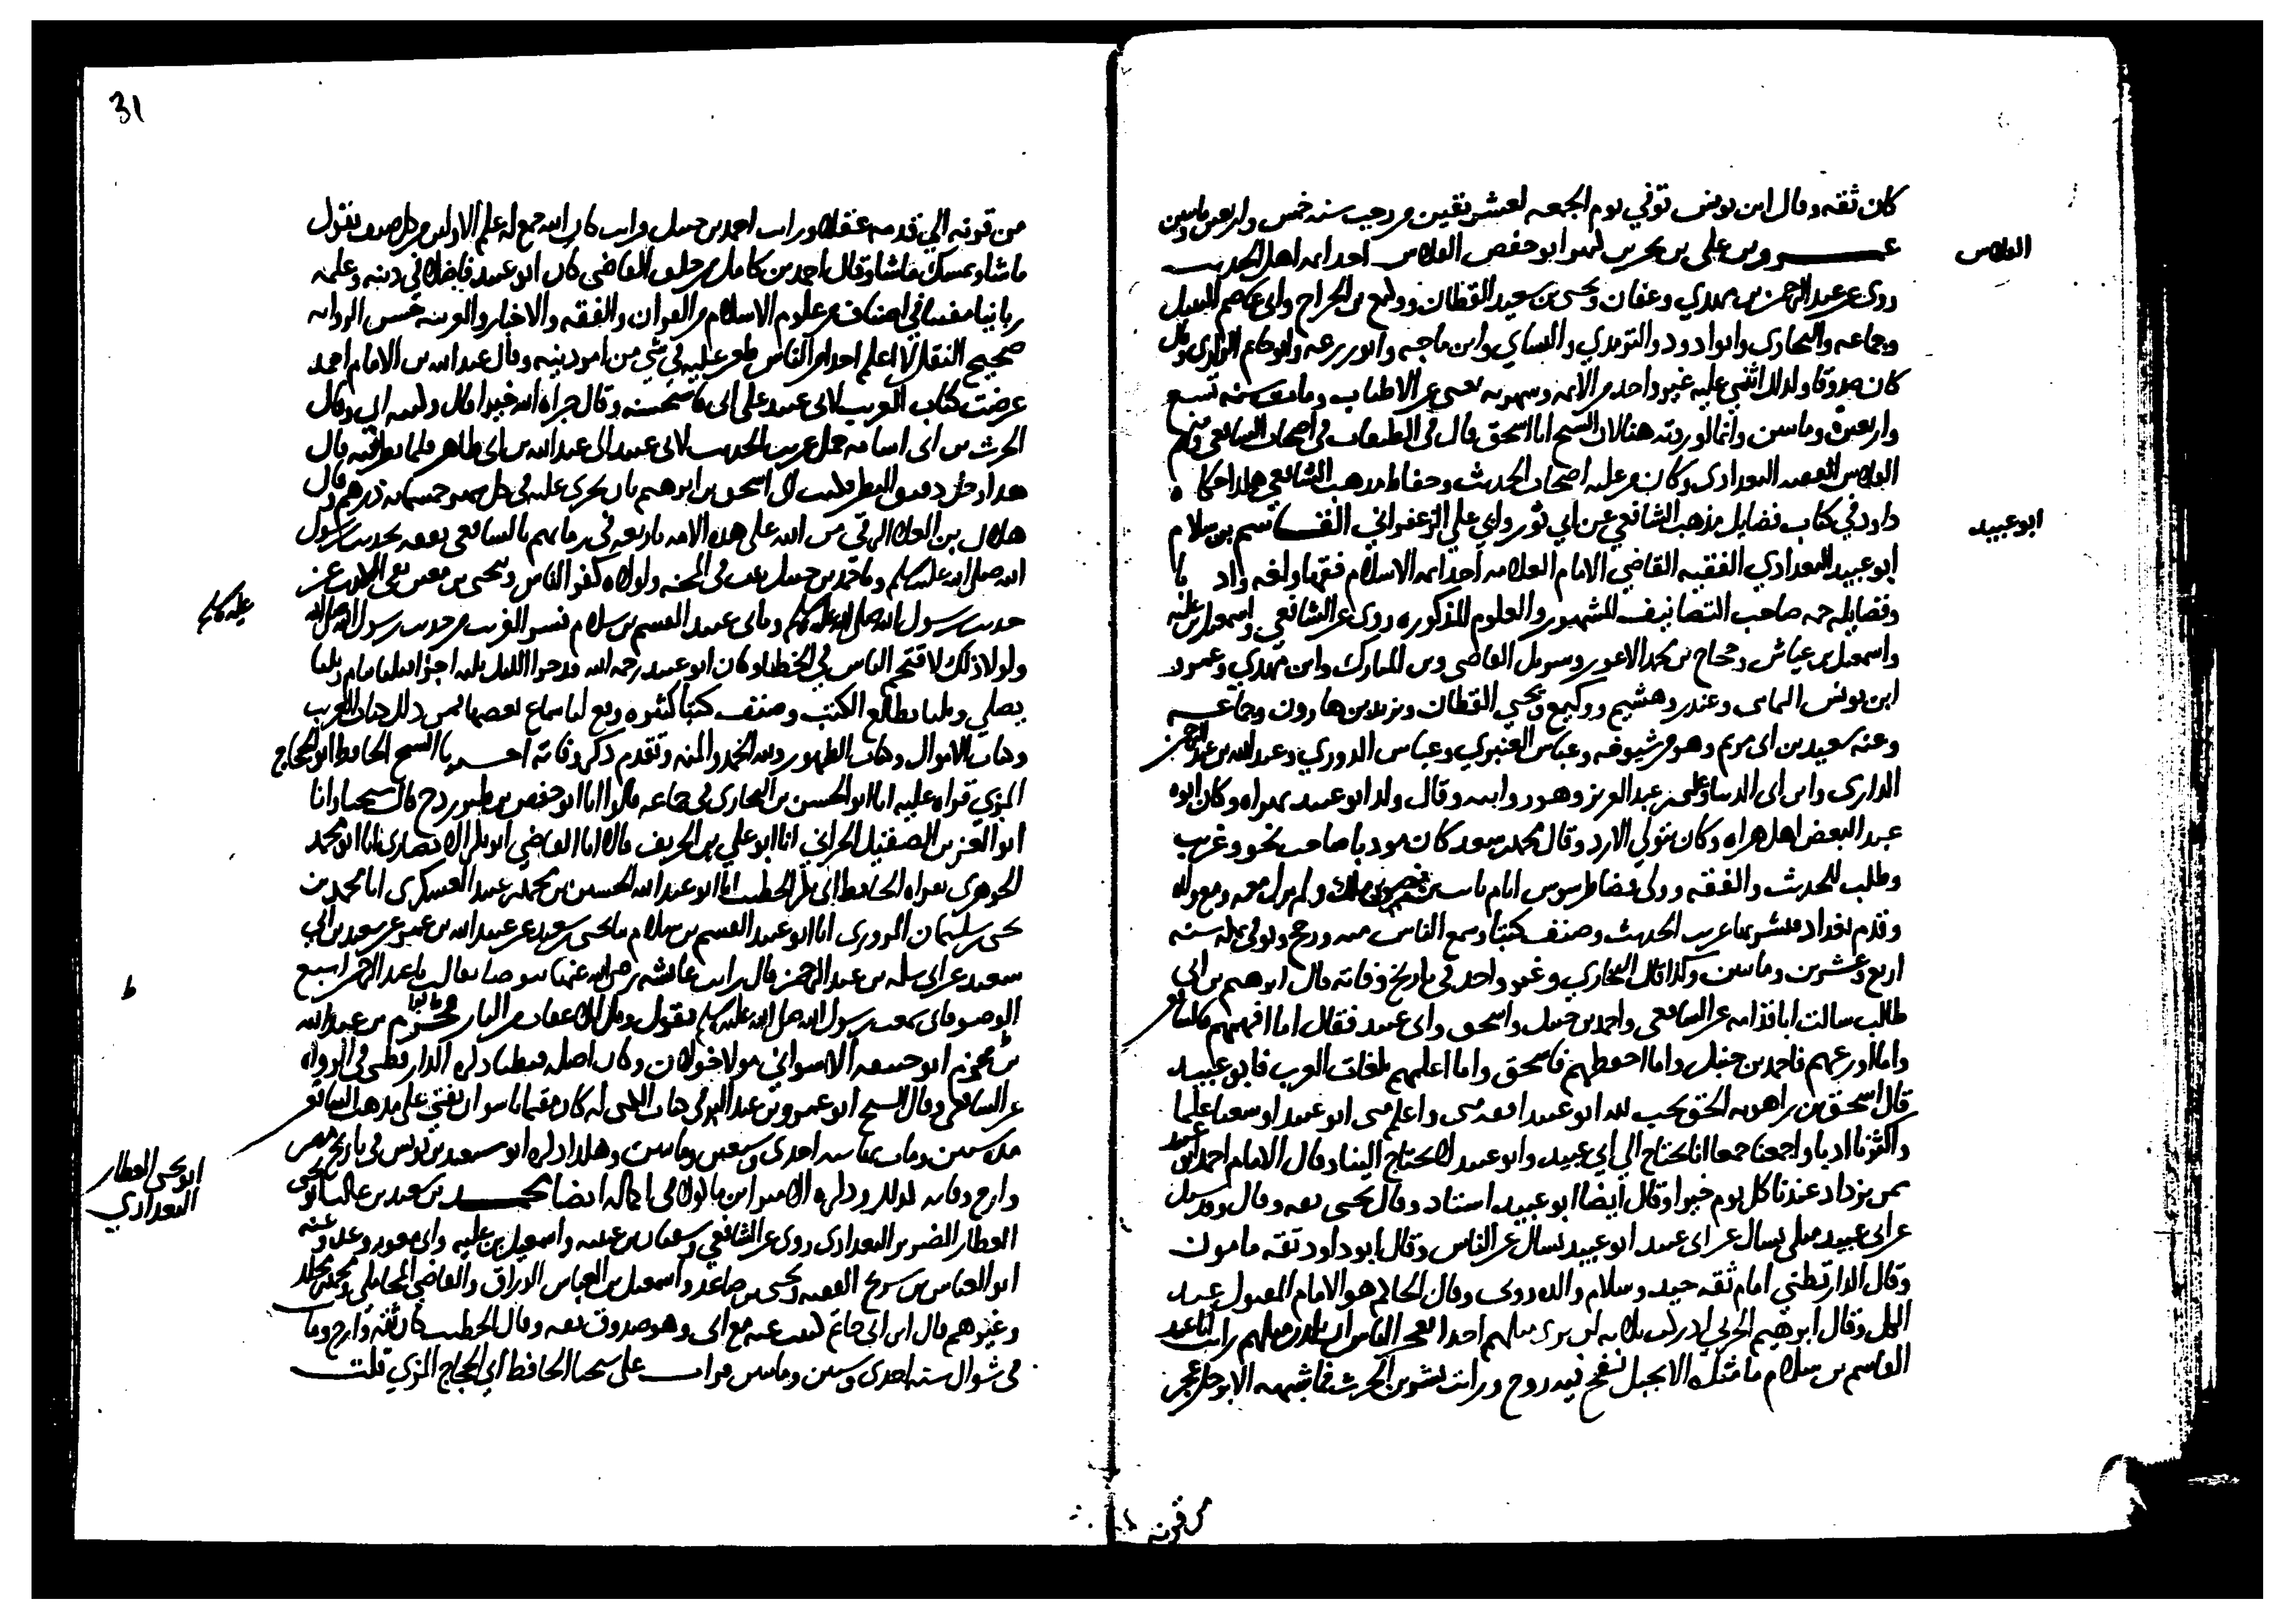 كان ثقه وقال ابن يونس توفي يوم الجمعه لعشر بقين من رجب سنه خمس واربعين وماتين
الفلاس
عمرو بن علي بن بحر بن كنيز ابو حفص الفلاس احد ائمه اهل الحديث
روى عن عبد الرحمن بن مهدي وعفان ويحيى بن سعيد القطان ووكيع بن الجراح وابي عاصم النبيل
وجماعه والبخاري وابو داود والترمذي والنساي وابن ماجه وابو زرعه وابو حاتم الرازي وقال
كان صدوقا ولذلك اثنى عليه غير واحد من الايمه وشهرته تغني عن الاطناب ومات سنه تسع
واربعين وماتين وانما اوردته هنا لان الشيخ ابا اسحق قال في الطبقات في اصحاب الشافعي ومنهم
الفلاس الفقيه البغدادي وكان من عليه اصحاب الحديث وحفاظ مذهب الشافعي هكذا حكاه
داود في كتاب فضايل مذهب الشافعي عن ابي ثور وابي علي الزعفراني القاسم بن سلام
ابو عبيد
ابو عبيد البغدادي الفقيه القاضي الامام العلامه احد ايمه الاسلام فقها ولغه وادبا
وفضايله جمه صاحب التصانيف المشهور والعلوم المذكوره روى عن الشافعي واسمعيل بن عليه
واسمعيل بن عياش وحجاج بن محمد الاعور وشريك القاضي وبن المبارك وابن مهدي وعمر
ابن يونس اليمامي وغندر وهشيم ووكيع ويحيى القطان ويزيد بن هارون وجماعه
وعنه سعيد بن ابي مريم وهو من شيوخه وعباس العنبري وعباس الدوري وعبد الله بن عبد الرحمن
الدارمي وابن ابي الدنيا وعلي بن عبد العزيز وهو راويته وقال ولد ابو عبيد بهراه وكان ابوه
عبدا لبعض اهل هراه وكان يتولى الازد وقال محمد بن سعد كان مودبا صاحب نحو وغريب
وطلب للحديث والفقه وولي قضا طرسوس ايام ثابت بن نصر بن ملك ولم يزل معه ومع ولده
وقدم بغداد ففسر بها غريب الحديث وصنف كتبا وسمع الناس منه وحج وتوفي بمكه سنه
اربع وعشرين وماتين وكذا قال البخاري وغير واحد في تاريخ وفاته قال ابرهيم بن ابي
طالب سالت ابا قدامه عن الشافعي واحمد بن حنبل واسحق وابي عبيد فقال اما افهمهم فالشافعي
واما اورعهم فاحمد بن حنبل واما احفظهم فاسحق واما اعلمهم بلغات العرب فابو عبيد
قال اسحق بن راهويه الحق يحب لله ابو عبيد افقه مني واعلم مني ابو عبيد اوسعنا علما
واكثرنا ادبا واجمعنا جمعا انا نحتاج الى ابي عبيد وابو عبيد لا يحتاج الينا وقال الامام احمد ابو عبيد
ممن يزداد عندنا كل يوم خيرا وقال ايضا ابو عبيد استاذ وقال يحيى ثقه وقال وقد سيل
عن ابي عبيد مثلي يسال عن ابي عبيد ابو عبيد يسال عن الناس وقال ابو داود ثقه مامون
وقال الدارقطني امام ثقه جبل وسلام والده رومي وقال الحاكم هو الامام المقبول عند
الكل وقال ابرهيم الحربي ادركت ثلاثه لن يرى مثلهم ابدا تعجز النساء ان يلدن مثلهم رايت ابا عبيد
القاسم بن سلام ما مثلته الا بجبل نفخ فيه روح ورايت بشر بن الحرث فما شبهته الا برجل عجن
من قرنه
31
من قرنه الى قدمه عقلا ورايت احمد بن حنبل فرايت كان الله جمع له علم الاولين من كل صنف يقول
ما شا ويمسك ما شا وقال احمد بن كامل بن خلف القاضي كان ابو عبيد فاضلا في دينه وعلمه
ربانيا مفننا في اصناف من علوم الاسلام من القران والفقه والاخبار والعربيه حسن الروايه
صحيح النقل لا اعلم احدا من الناس طعن عليه في شي من امر دينه وقال عبد الله بن الامام احمد
عرضت كتاب الغريب لابي عبيد على ابي فاستحسنه وقال جزاه الله خيرا قال وكتبه ابي وقال
الحرث بن ابي اسامه حمل غريب الحديث لابي عبيد الى عبد الله بن طاهر فلما نظر فيه قال
هذا رجل دقيق النظر فكتب الى اسحق بن ابرهيم بان يجري عليه في كل شهر خمسمايه درهم وقال
هلال بن العلا الرقي من الله على هذه الامه باربعه في زمانهم بالشافعي بفقه بحديث رسول
الله صلى الله عليه وسلم وباحمد بن حنبل ثبت في المحنه ولولاه كفر الناس وبيحيى بن معين نفى الكذب عن
حديث رسول الله صلى الله عليه وسلم وبابي عبيد القسم بن سلام فسر الغريب من حديث رسول الله صلى الله
عليه وسلم
ولولا ذلك لاقتحم الناس في الخطا وكان ابو عبيد رحمه الله قد جزا الليل ثلثه اجزا ثلثا ينام وثلثا
يصلي وثلثا يطالع الكتب وصنف كتبا كثيره وقع لنا سماع بعضها فمن ذلك كتاب الغريب
وكتاب الاموال وكتاب الطهور ولله الحمد والمنه وتقدم ذكر وفاته اخبرنا الشيخ الحافظ ابو الحجاج
المزي قراه عليه انا ابو الحسن بن البخاري في جماعه قالوا انا ابو حفص بن طبرزد ح قال شيخنا وانا
ابو العز بن الصيقل الحراني انا ابو علي بن الخريف قالا انا القاضي ابو بكر الانصاري انا ابو محمد
الجوهري بقراه الحافظ ابي بكر الخطيب انا ابو عبد الله الحسين بن محمد بن عبيد العسكري انا محمد بن
يحيى بن سليمان المروزي انا ابو عبيد القسم بن سلام نا يحيى بن سعيد عن عبيد الله بن عمر عن سعيد بن ابي
سعيد عن ابي سلمه بن عبد الرحمن قال رات عائشه رضي الله عنها عبد الرحمن توضا فقالت يا عبد الرحمن اسبغ
الوضو فاني سمعت رسول الله صلى الله عليه وسلم يقول ويل للاعقاب من النار قحزم بن عبد الله
ط
بن قحزم ابو حنيفه الاسواني مولا خولان وكان اصله قبطيا ذكره الدارقطني في الرواه
عن الشافعي وقال الشيخ ابو عمرو بن عبد البر في كتاب الكنى له كان مقيما باسوان يفتي على مذهب الشافعي
مده سنين ومات بها سنه احدى وسبعين وماتين وهكذا ذكره ابو سعيد بن يونس في تاريخ مصر
وارخ وفاته كذلك وذكره الامير ابن ماكولا في اكماله ايضا محمد بن سعيد بن غالب ابو يحيى
ابو يحيى العطار
البغدادي
العطار الضرير البغدادي روى عن الشافعي وسفيان بن عيينه واسمعيل بن عليه وابي معويه وعده وعنه
ابو العباس بن سريج الفقيه ويحيى بن صاعد واسمعيل بن العباس الوراق والقاضي المحاملي ومحمد بن مخلد
وغيرهم قال ابن ابي حاتم كتبت عنه مع ابي وهو صدوق ثقه وقال الخطيب كان ثقه وارخ وفاته
في شوال سنه احدى وستين وماتين قرات على شيخنا الحافظ ابي الحجاج المزي قلت